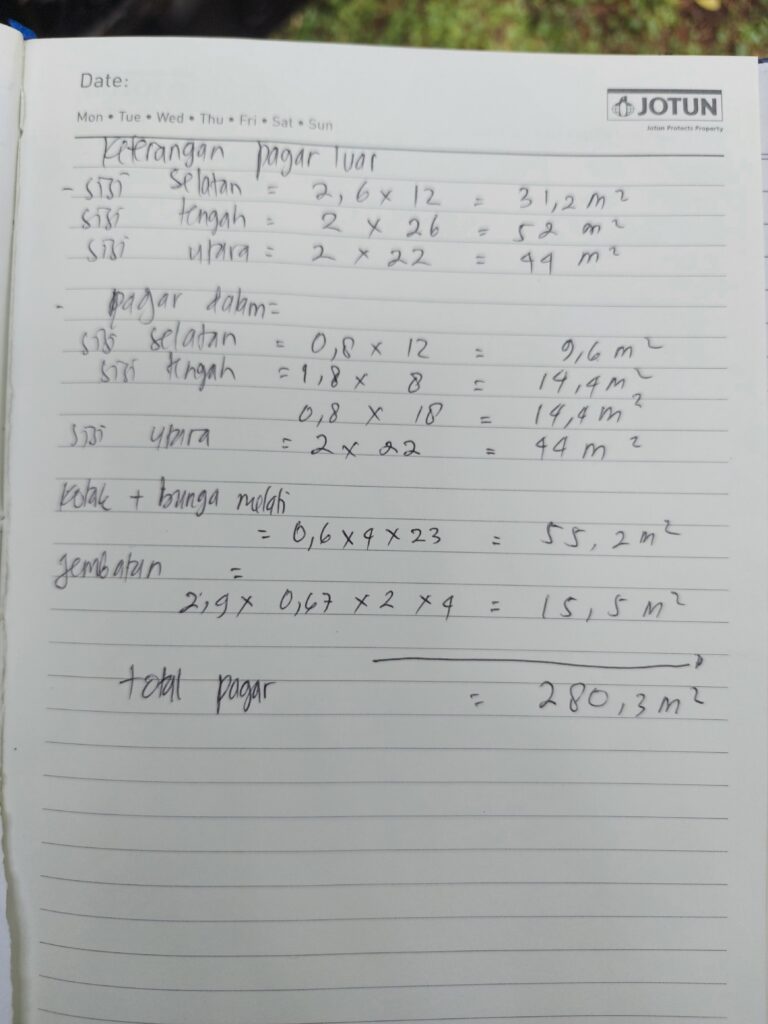 Date:
JOTUN
Jotun Protects Property
Mon • Tue • Wed • Thu • Fri • Sat • Sun
Keterangan pagar luar
- sisi selatan = 2,6 x 12 = 31,2 m²
sisi tengah = 2 x 26 = 52 m²
sisi utara = 2 x 22 = 44 m²
- pagar dalam =
sisi selatan = 0,8 x 12 = 9,6 m²
sisi tengah = 1,8 x 8 = 14,4 m²
0,8 x 18 = 14,4 m²
sisi utara = 2 x 22 = 44 m²
kotak + bunga melati
= 0,6 x 4 x 23 = 55,2 m²
Jembatan =
2,9 x 0,67 x 2 x 4 = 15,5 m²
total pagar = 280,3 m²